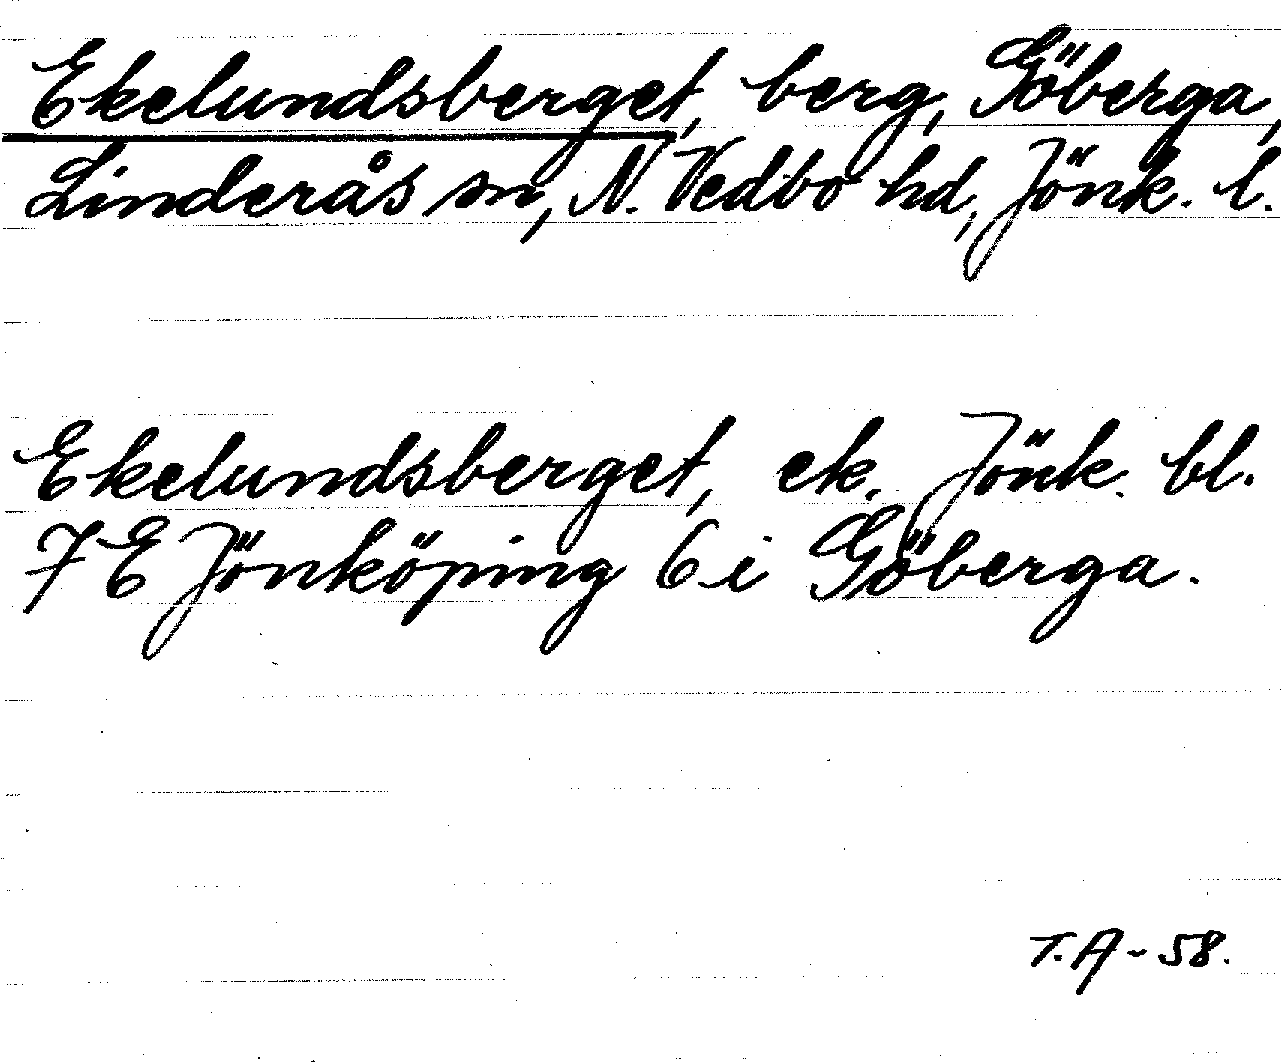 Ekelundsberget, berg, Göberga,
Linderås sn, N. Vedbo hd, Jönk. l.
Ekelundsberget, ek. Jönk. bl.
7 E Jönköping 6 i Göberga.
T.A-58.